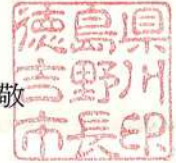 敬
徳島県
吉野川
市長印